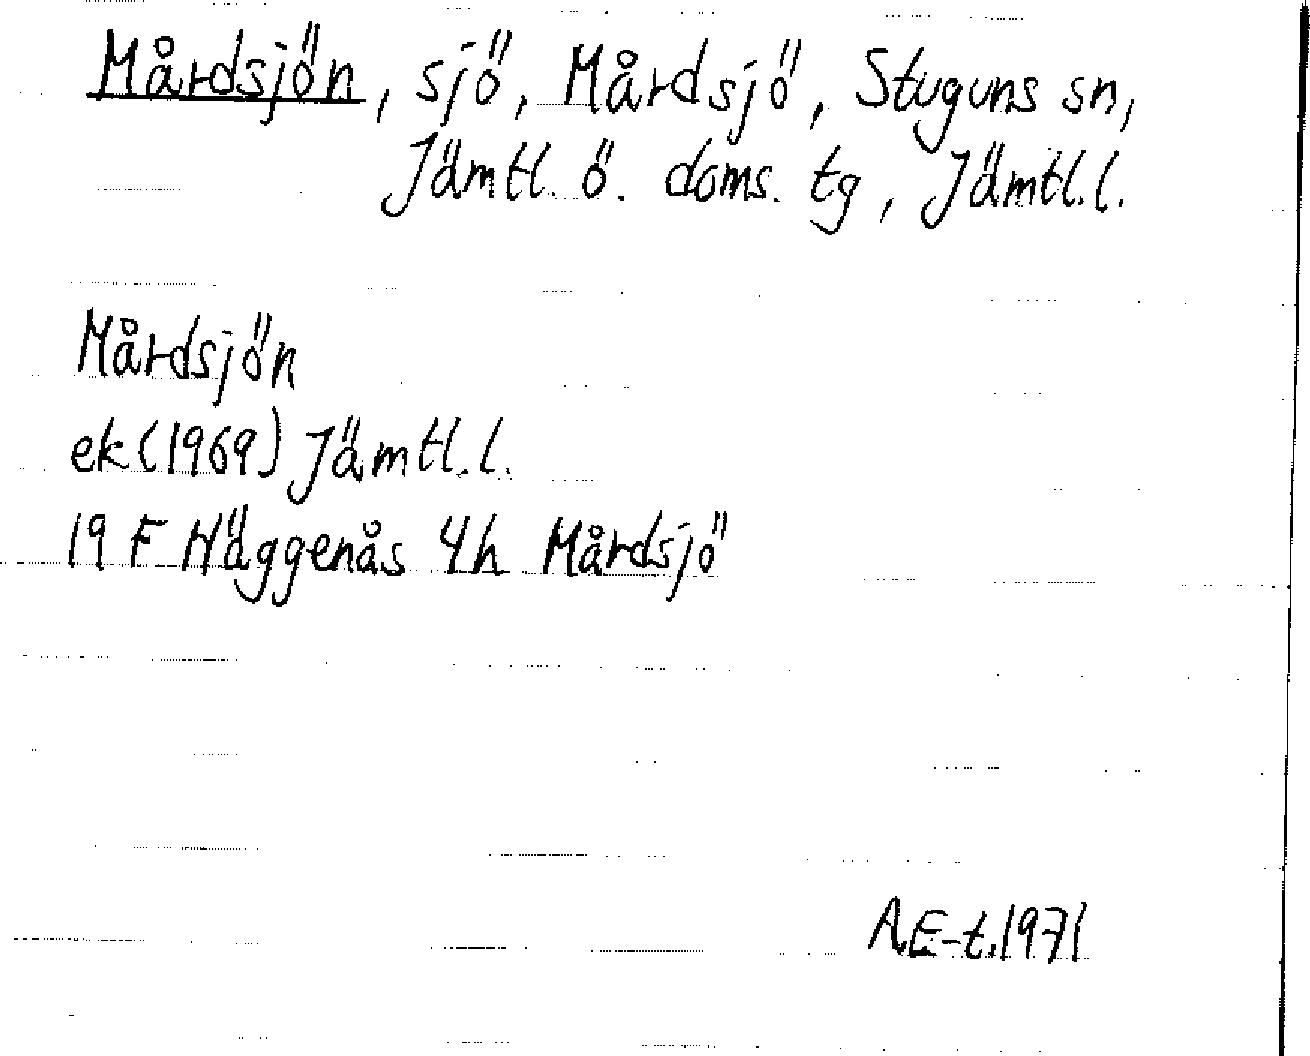 Mårdsjön, sjö, Mårdsjö, Stuguns sn,
Jämtl. ö. doms. tg, Jämtl.l.
Mårdsjön
ek (1969) Jämtl.l.
19 F Häggenås 4h Mårdsjö
A.E-t.1971